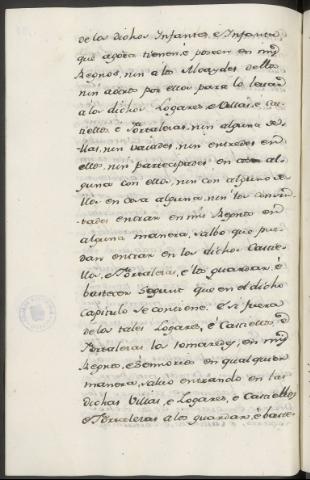 de los dichos Infantes, e Infanta
que agora tienen, e poseen en mis
Regnos, nin a los Alcaydes dellos
nin a otro por ellos para lo levar
a los dichos Logares, e Villas, e Cas
tiellos e Fortalezas, nin alguna de
llas, nin vayades, nin entredes en
ellos, nin participedes en cosa al
guna con ellos, nin con alguno de
llos en cosa alguna, nin los consin
tades entrar en mis Regnos en
alguna manera, salbo que pue
dan entrar en los dichos Castie
llos, e Fortalezas, e los guardar, é
bastecer segunt que en el dicho
Capitulo se contiene. E si fuera
de los tales Logares, e Castiellos, e
Fortalezas los tomaredes, en mis
Regnos, e Señorios en qualquier
manera, salvo entrando en las
dichas Villas, e Logares, e Castiellos
e Fortalezas a los guardar, é baste